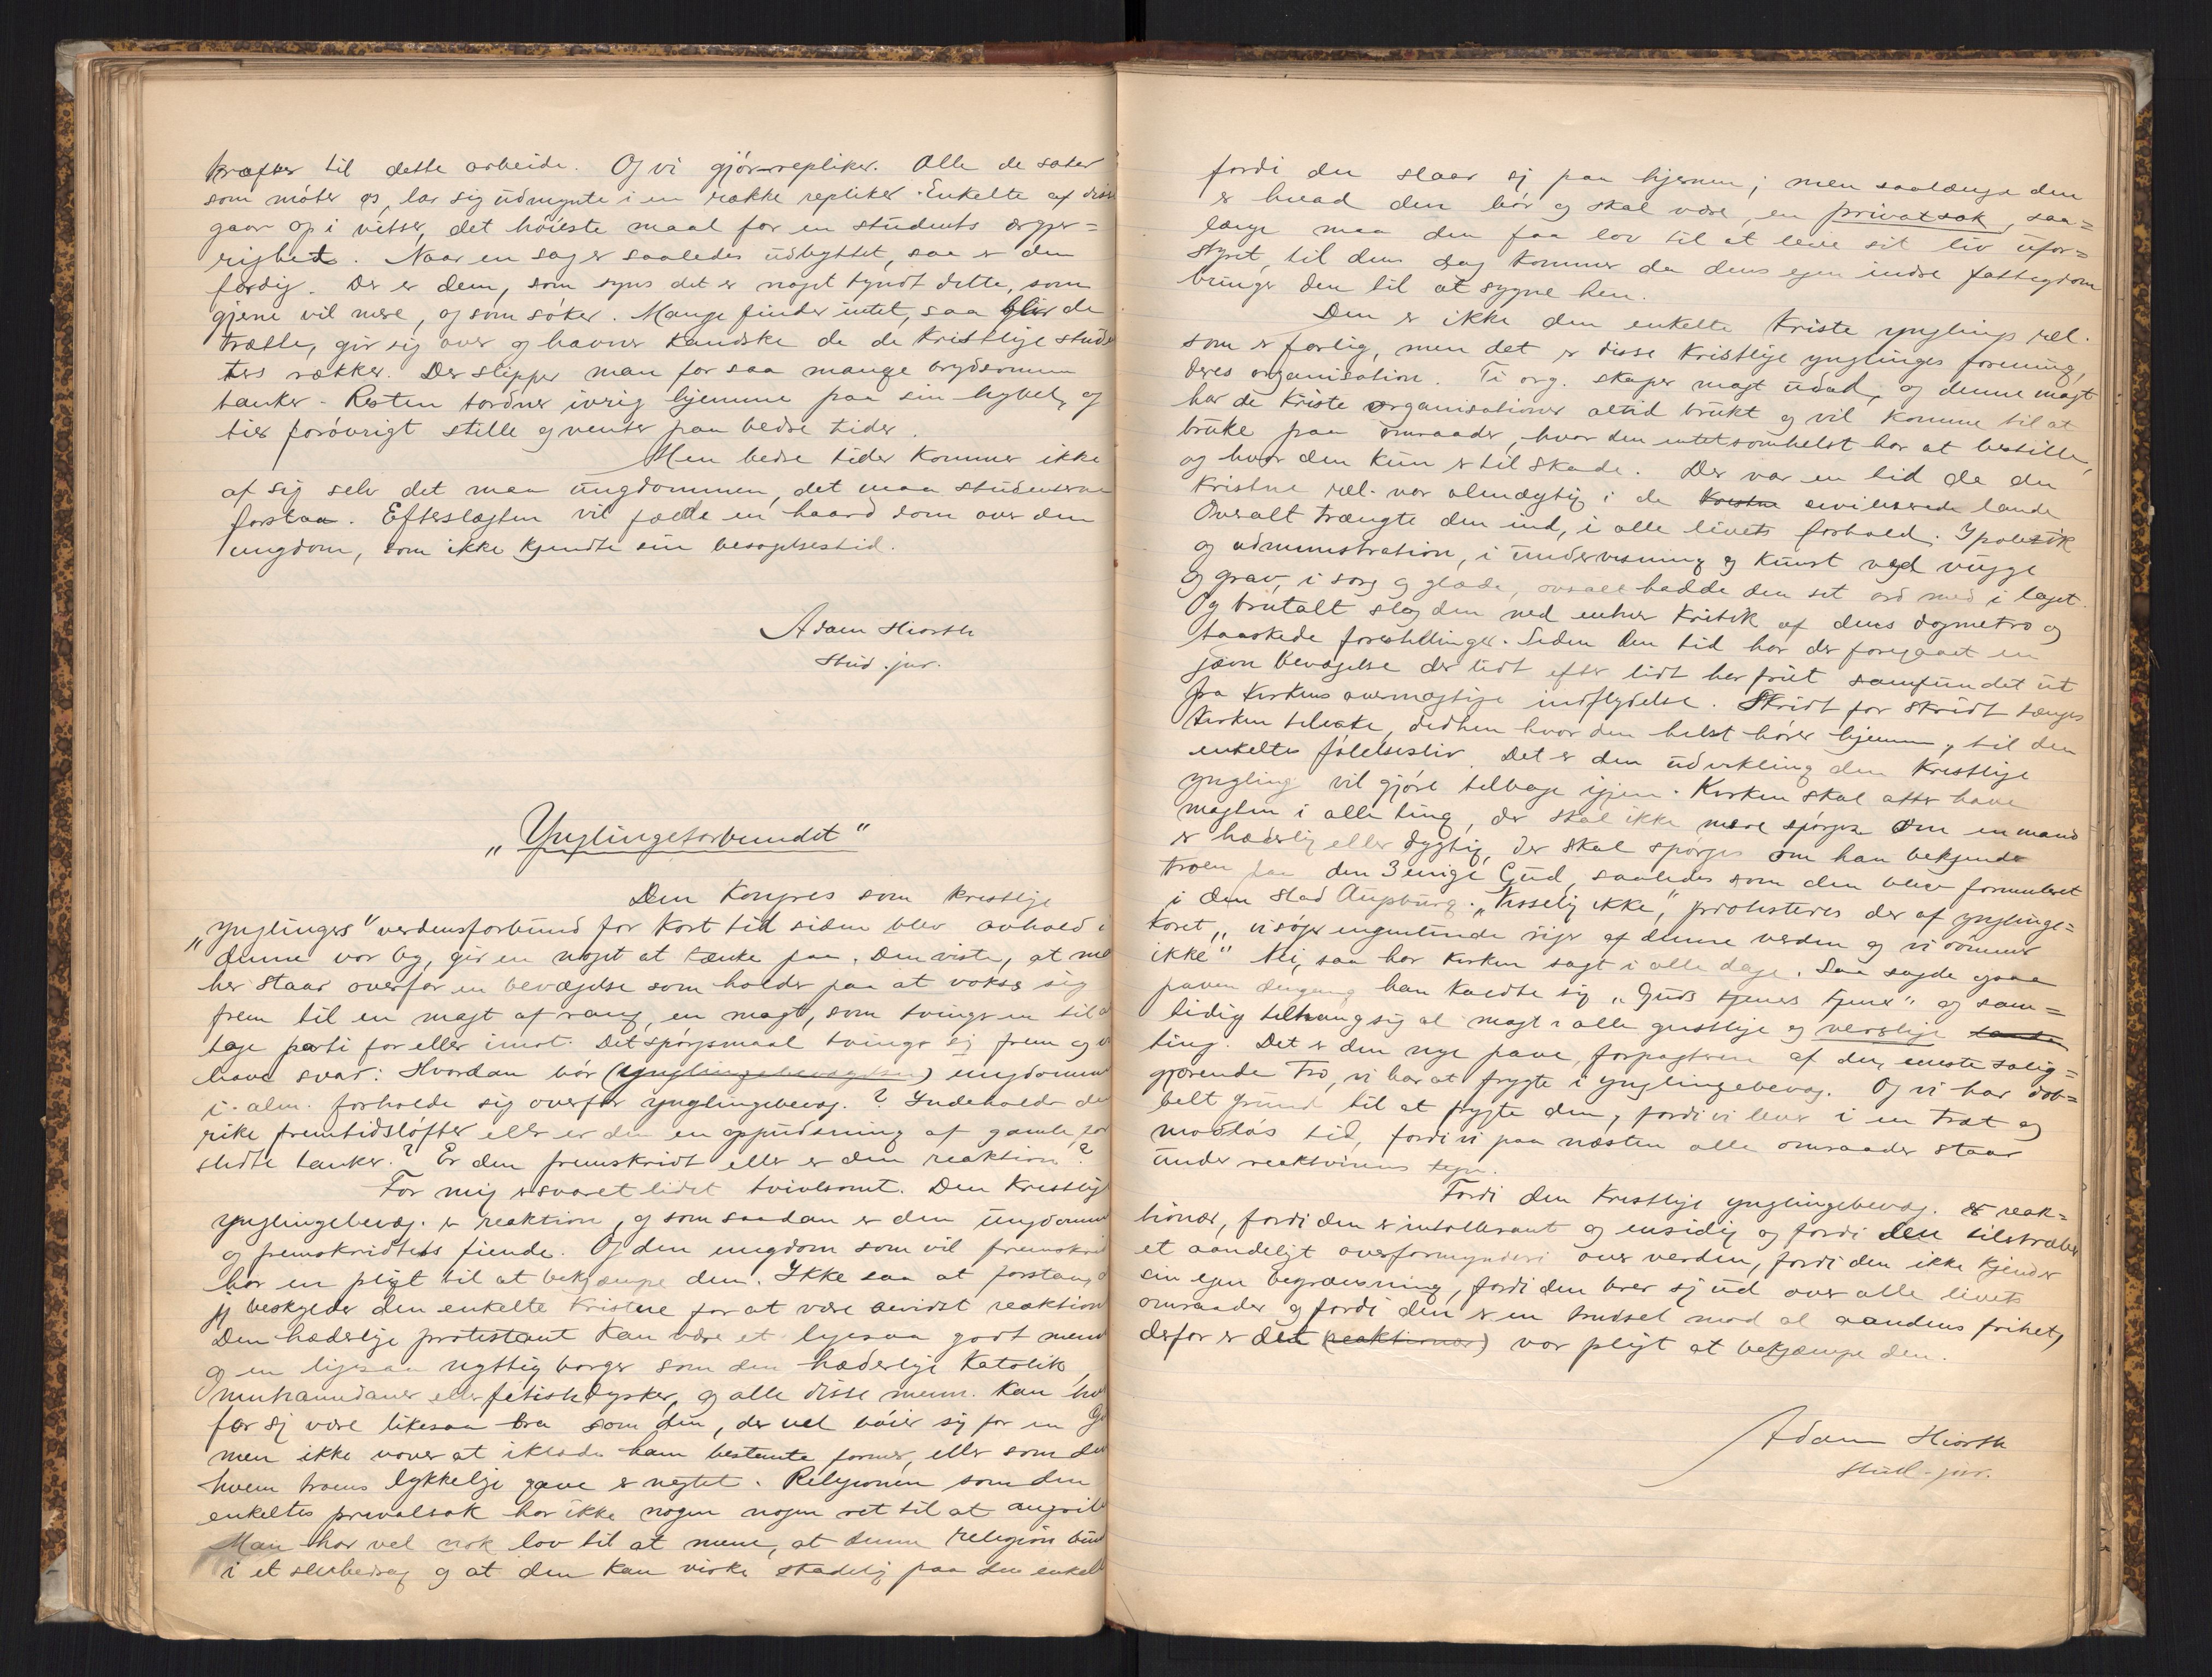 kræfter til dette arbeide. Og vi gjør repliker. Alle de saker
som møter os, lar sig udmynte i en række repliker. Enkelte af disse
gaar op i vitser, det høieste maal for en students ærgjer=
righet. Naar en sag er saaledes udbyttet, saa er den
færdig. Der er dem, som syns det er noget tyndt dette, som
gjerne vil mere, og som søker. Mange finder intet, saa blir de
trætte, gir sig over og havner kandske de de kristlige studen
ters rækker. Der slipper man for saa mange brydsomme
tanker. Resten tordner ivrig hjemme paa sin hybel, og
tier forøvrigt stille og venter paa bedre tider.
Men bedre tider kommer ikke
af sig selv det maa ungdommen, det maa studenterne
forstaa. Efterslægten vil fælde en haard dom over den
ungdom, som ikke kjendte sin besøgelsestid.
Adam Hiorth
stud. jur.
„Ynglingeforbundet“
Den Kongres som kristlige
„ynglingers“ verdensforbund for kort tid siden blev avhold i
denne vor by, gir en noget at tænke paa. Den viste, at ma
her staar overfor en bevægelse som holder paa at vokse sig
frem til en magt af rang, en magt, som tvinger en til a
tage parti for eller imot. Det spørgsmaal tvinger sig frem og
have svar: Hvordan bør (ynglingebevægelsen) ungdommen
i alm. forholde sig overfor ynglingebevæg.? Indeholder de
rike fremtidsløfter eller er den en oppudsning af gamle, for
slidte tanker.? Er den fremskridt eller er den reaktion?
For mig er svaret lidet tvivlsomt. Den kristlig
ynglingebevæg. er reaktion, og som saadan er den ungdomme
og fremskridtets fiende. Og den ungdom som vil fremskrid
har en pligt til at bekjæmpe den. Ikke saa at forstaa, a
jg beskylder den enkelte kristne for at være bevidst reaktion
Den hæderlige protestant kan være et ligesaa godt menn
og en ligesaa nyttig borger som den hæderlige katolik,
muhamedaner eller fetishdyrker, og alle disse menn. kan hv
for sig være likesaa bra som den, der vel bøier sig for en Gu
men ikke vover at iklæde ham bestemte former, eller som de
hvem troens lykkelige gave er negtet. Religionen som den
enkeltes privatsak har ikke nogen nogen ret til at angrib
Man har vel nok lov til at mene, at denne religion bund
i et selvbedrag og at den kan virke skadelig paa den enkelt
fordi den slaar sig paa hjernen; men saalænge den
er hvad den bør og skal være, en privatsak, saa=
længe maa den faa lov til at leve sit liv ufor=
styret, til dens dag kommer da dens egen indre fattigdom
bringer den til at sygne hen.
Den er ikke den enkelte kriste ynglings rel.
som er farlig, men det er disse kristlige ynglinges forening,
deres organisation. Ti org. skaper magt udad, og denne magt
har de kriste organisationer altid brukt og vil komme til at
bruke paa omraader, hvor den intetsomhelst har at bestille,
og hvor den kun er til skade. Der var en tid da den
kristne rel. var almægtig i de kristne siviliserede lande
Overalt trængte den ind, i alle livets forhold. I politik
og administration, i undervisning og kunst ved vugge
og grav, i sorg og glæde, overalt hadde den set ord med i laget.
Og brutalt slog den ned enhver kritik af dens dogmetro og
taakede forestillinger. Siden den tid har der foregaaet en
jævn bevægelse der lidt efter lidt har friet samfundet ut
fra kirkens overmægtige indflydelse. Skridt for skridt tænges
kirken tilbake, didhen hvor den helst hører hjemme, til den
enkeltes følelsesliv. Det er den udvikling den kristlige
yngling vil gjøre tilbage igjen. Kirken skal atter have
magten i alle ting, der skal ikke mere spørges om en mand
er hæderlig eller dygtig, der skal spørges om han bekjender
troen paa den 3 enige Gud, saaledes som den blev formuleret
i den stad Augsburg. „Visselig ikke“, protesteres der af ynglinge=
koret „vi søger ingenlunde riger af denne verden og vi dømmer
ikke“ Nei, saa har kirken sagt i alle dage. Saa sagde ogsaa
paven dengang han kaldte sig „Guds tjeners tjener“ og sam=
tidig tiltrang sig al magt i alle gustlige og verslige
ting. Det er den nye pave, forpagteren af den eneste salig=
gjørende tro, vi har at frygte i ynglingebevæg. Og vi har dob=
belt grund til at frygte den, fordi vi lever i en træt og
modløs tid, fordi vi paa næsten alle omraader staar
under reaktionens tegn.
Fordi den kristlige ynglingebevæg. er reak=
tionær, fordi den er intollerant og ensidig og fordi den tilstræber
et aandeligt overformynderi over verden, fordi den ikke kjender
sin egen begrænsning, fordi den brer sig ud over alle livets
omraader og fordi den er en trudsel mod al aandens frihet,
derfor er det (reaktionær) vor pligt at bekjæmpe den.
Adam Hiorth
stud. jur.